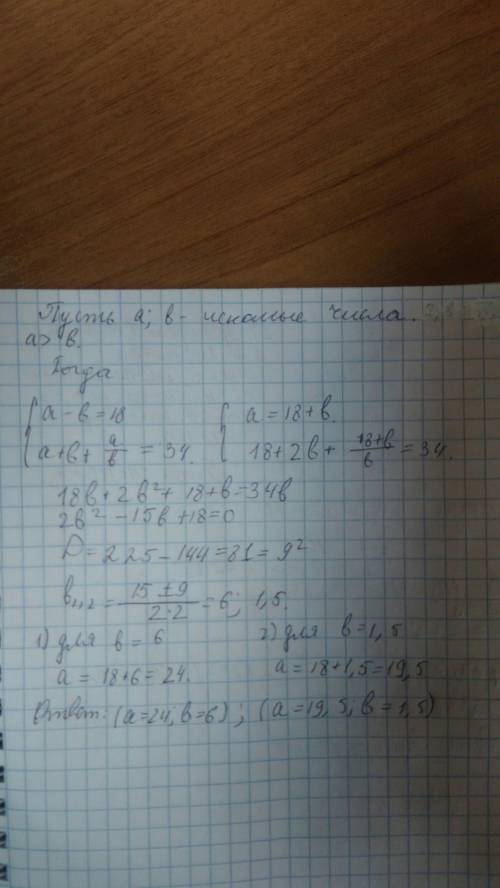 Пусть a; b - искомые числа.
a > b.
Тогда
{ a - b = 18
{ a + b + a/b = 34.
{ a = 18 + b.
{ 18 + 2b + (18+b)/b = 34.
18b + 2b² + 18 + b = 34b
2b² - 15b + 18 = 0
D = 225 - 144 = 81 = 9²
b₁,₂ = (15 ± 9)/(2·2) = 6; 1,5.
1) для b = 6
a = 18 + 6 = 24.
2) для b = 1,5
a = 18 + 1,5 = 19,5
Ответ: (a = 24; b = 6) ; (a = 19,5; b = 1,5)